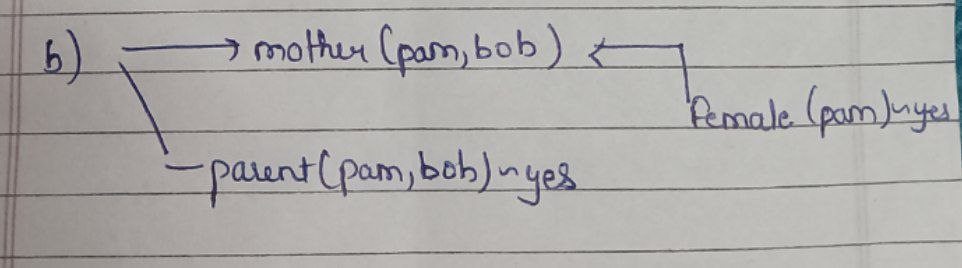 b) → mother (pam, bob) ←
female (pam) ~ yes
- parent (pam, bob) ~ yes